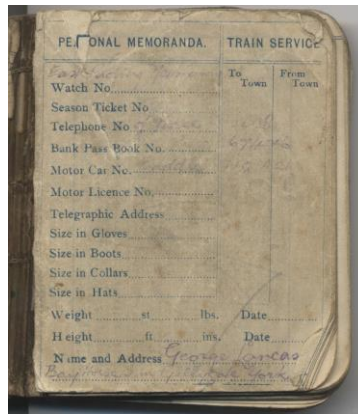 PERSONAL MEMORANDA. TRAIN SERVICE
To Town From Town
Watch No.
Season Ticket No.
Telephone No.
Bank Pass Book No.
Motor Car No.
Motor Licence No.
Telegraphic Address
Size in Gloves
Size in Boots
Size in Collars
Size in Hats
Weight st lbs. Date
Height ft ins. Date
Name and Address George